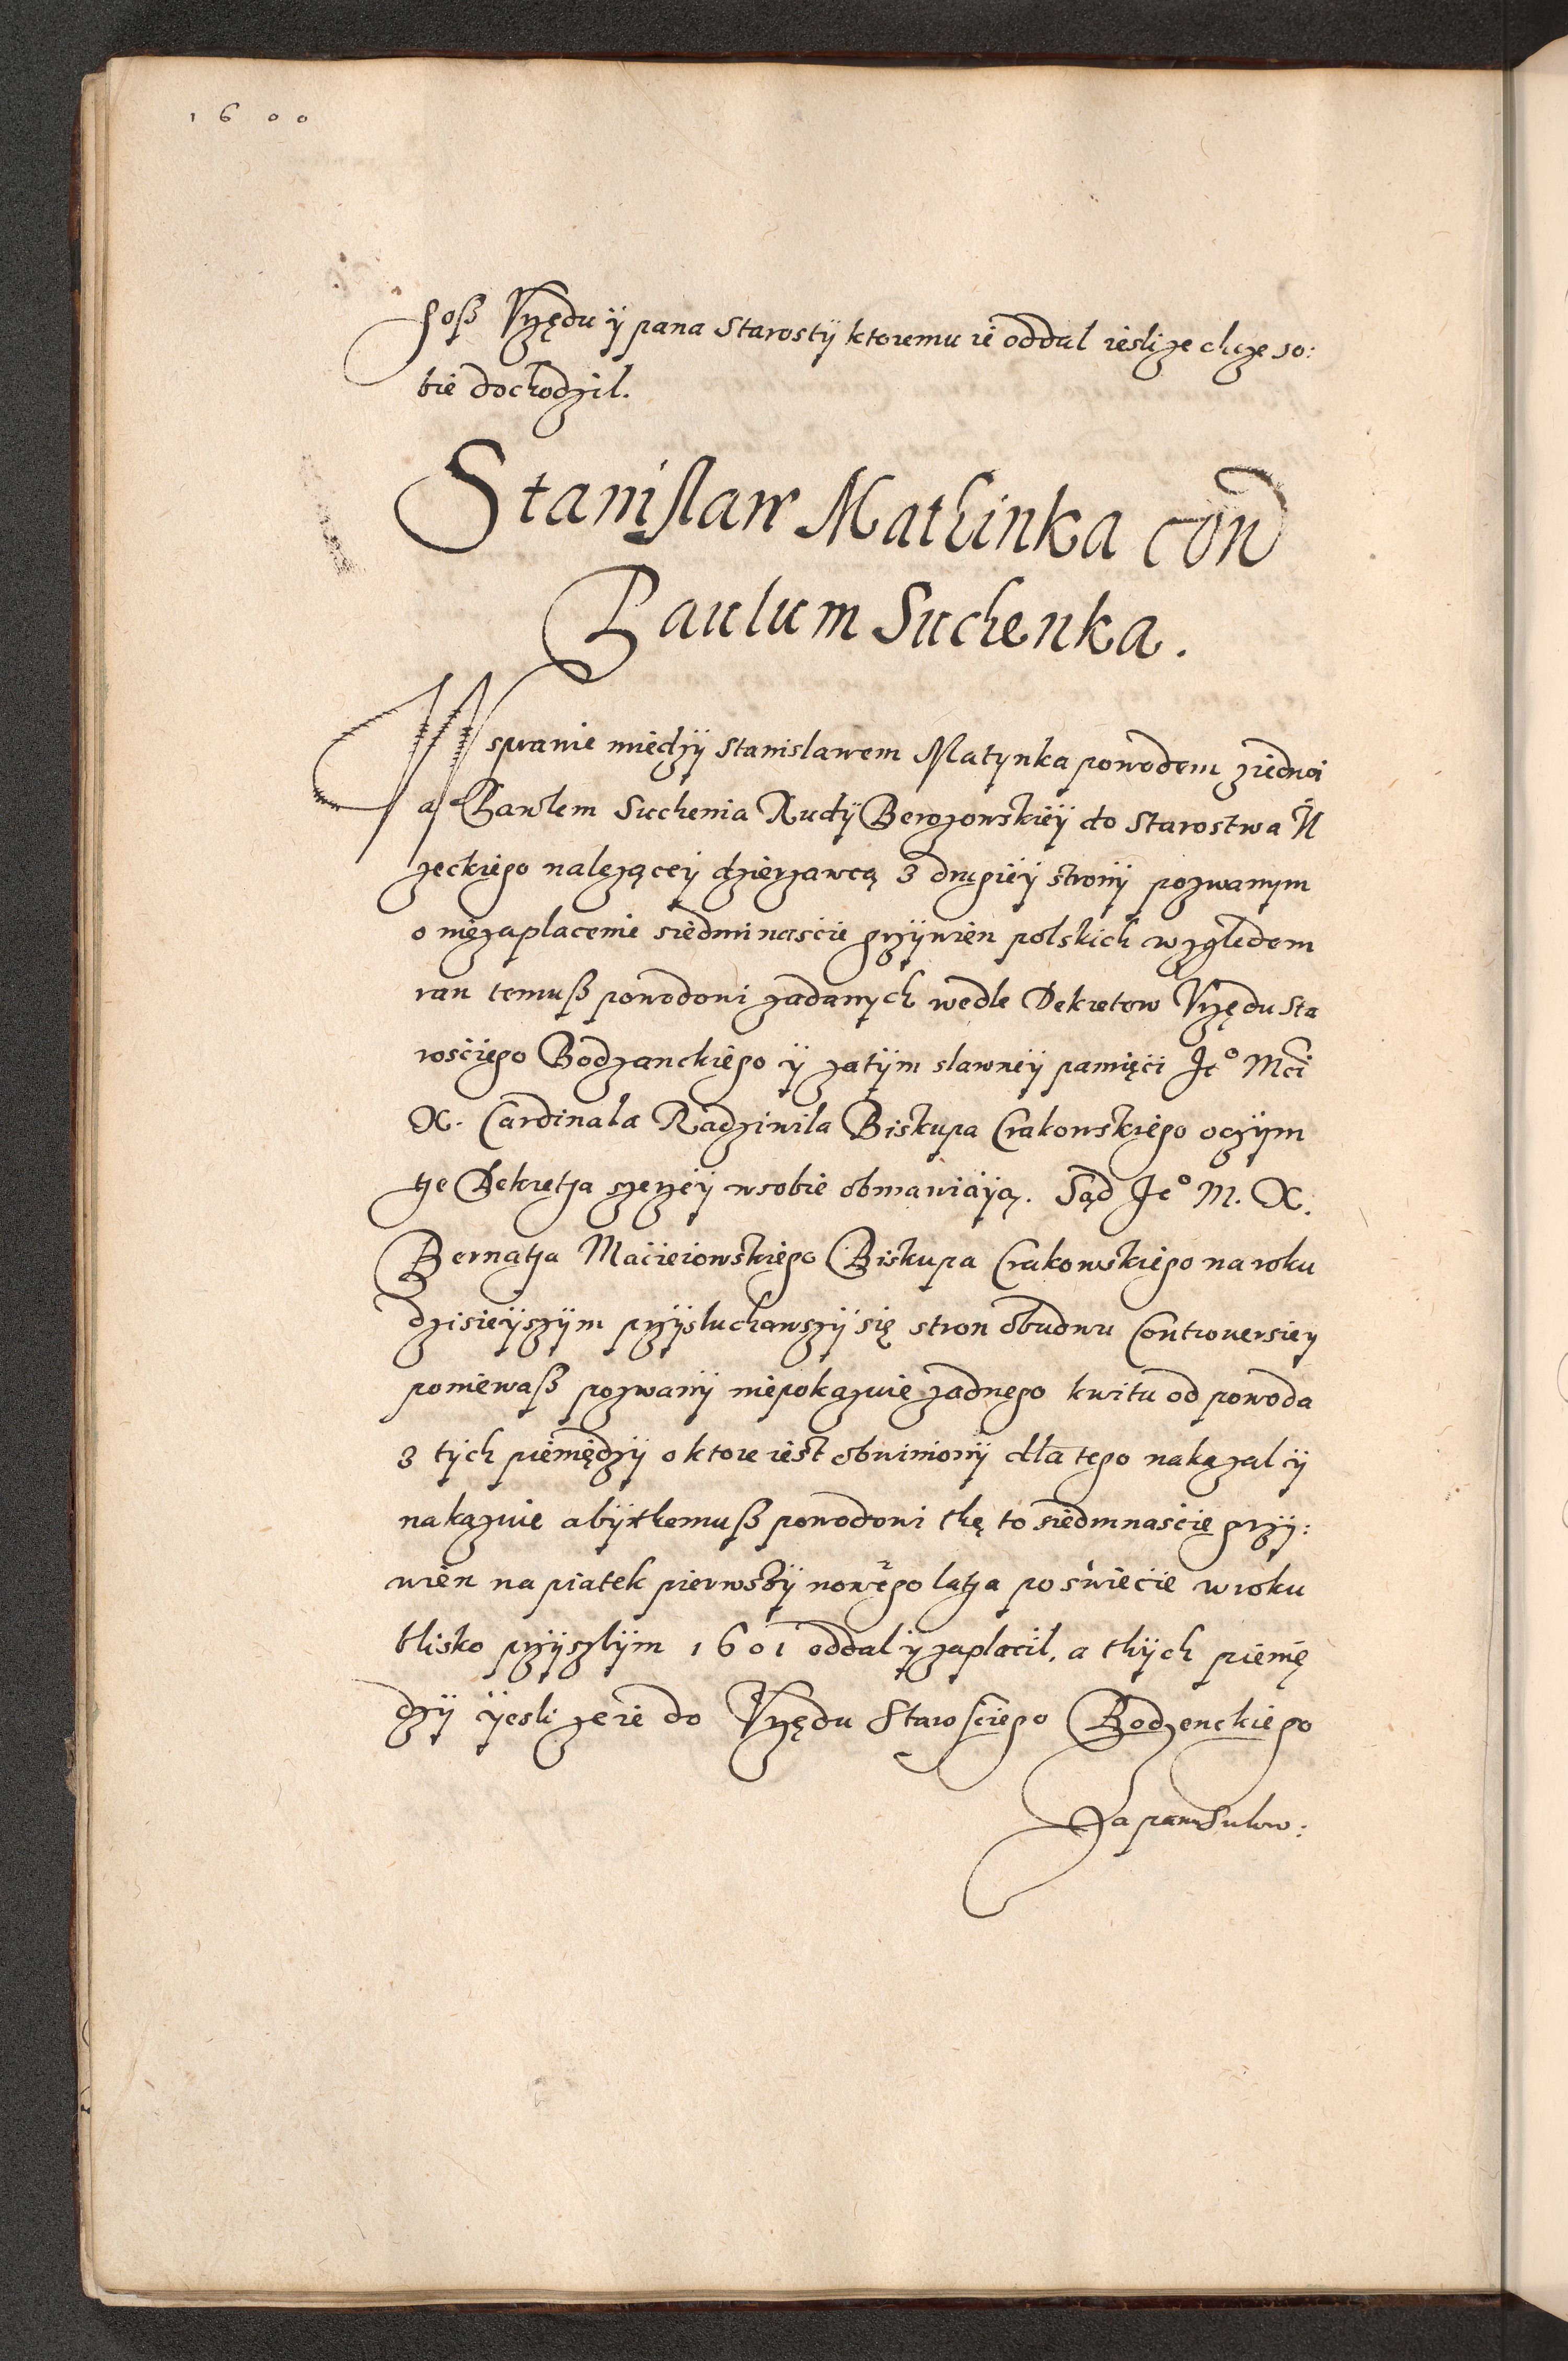 1600
goß Vrzędu ÿ pana Starostÿ ktoremu ie oddal iesli ze chcze so:
bie dochodzil.
Stanislaw Mathinka con
Paulum Suchenka.
W sprawie miedzÿ Stanislawem Matynka powodem ziednei
a Pawlem Suchenia Rudÿ Berezowskieÿ do Starostwa Il
zeckiego nalezącey dzierzawcą z drugieÿ stronÿ pozwanym
o niezaplacenie siedminascie grzÿwien polskich względem
ran temuß powodowi zadanych wedle Dekretow Vrzędu Sta
rosciego Bodzanckiego ÿ zatÿm slawneÿ pamięci Je° Mci
X. Cardinala Radziwila Biskupa Crakowskiego oczÿm
tze Dekretha szerzeÿ wsobie obmawiaÿą. Sąd Je° M. X.
Bernatha Macieiowskiego Biskupa Crakowskiego na roku
dzisieÿszÿm przÿsluchawszÿ się stron obudwu Controuersiey
poniewaß pozwanÿ niepokazuie zadnego kwitu od powoda
z tÿch pieniędzÿ o ktore iest obwinionÿ dla tego nakazal ÿ
nakazuie abÿ themuß powodowi thę to siedmnascie grzÿ:
wien na piatek pierwszÿ nowego latha po swiecie w roku
blisko przÿszlÿm 1601 oddal ÿ zaplacil, a thÿch pienię
dzÿ ÿesli ze ie do Vrzędu Starosciego Bodzenckiego
Za pana Sulow: